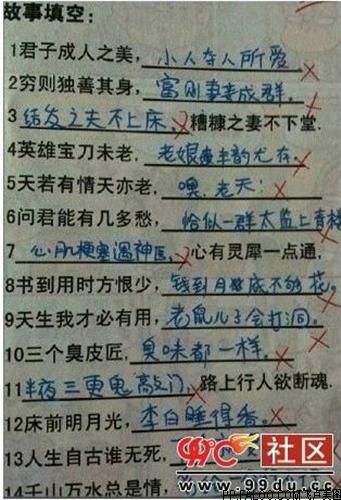 故事填空:
1君子成人之美,小人夺人所爱
2穷则独善其身,富则妻妾成群。
3结发之夫不上床,糟糠之妻不下堂.
4英雄宝刀未老,老娘半韵尤存。
5天若有情天亦老,噢,老天!
6问君能有几多愁,恰似一群太监上青楼
7心肌梗塞遇神医,心有灵犀一点通,
8书到用时方恨少,钱到月底不够花。
9天生我才必有用,老鼠儿子会打洞。
10三个臭皮匠,臭味都一样。
11半夜三更鬼敲门,路上行人欲断魂.
12床前明月光,李白睡得香。
13人生自古谁无死,
14千山万水总是情
99DC社区
www.99du.cc